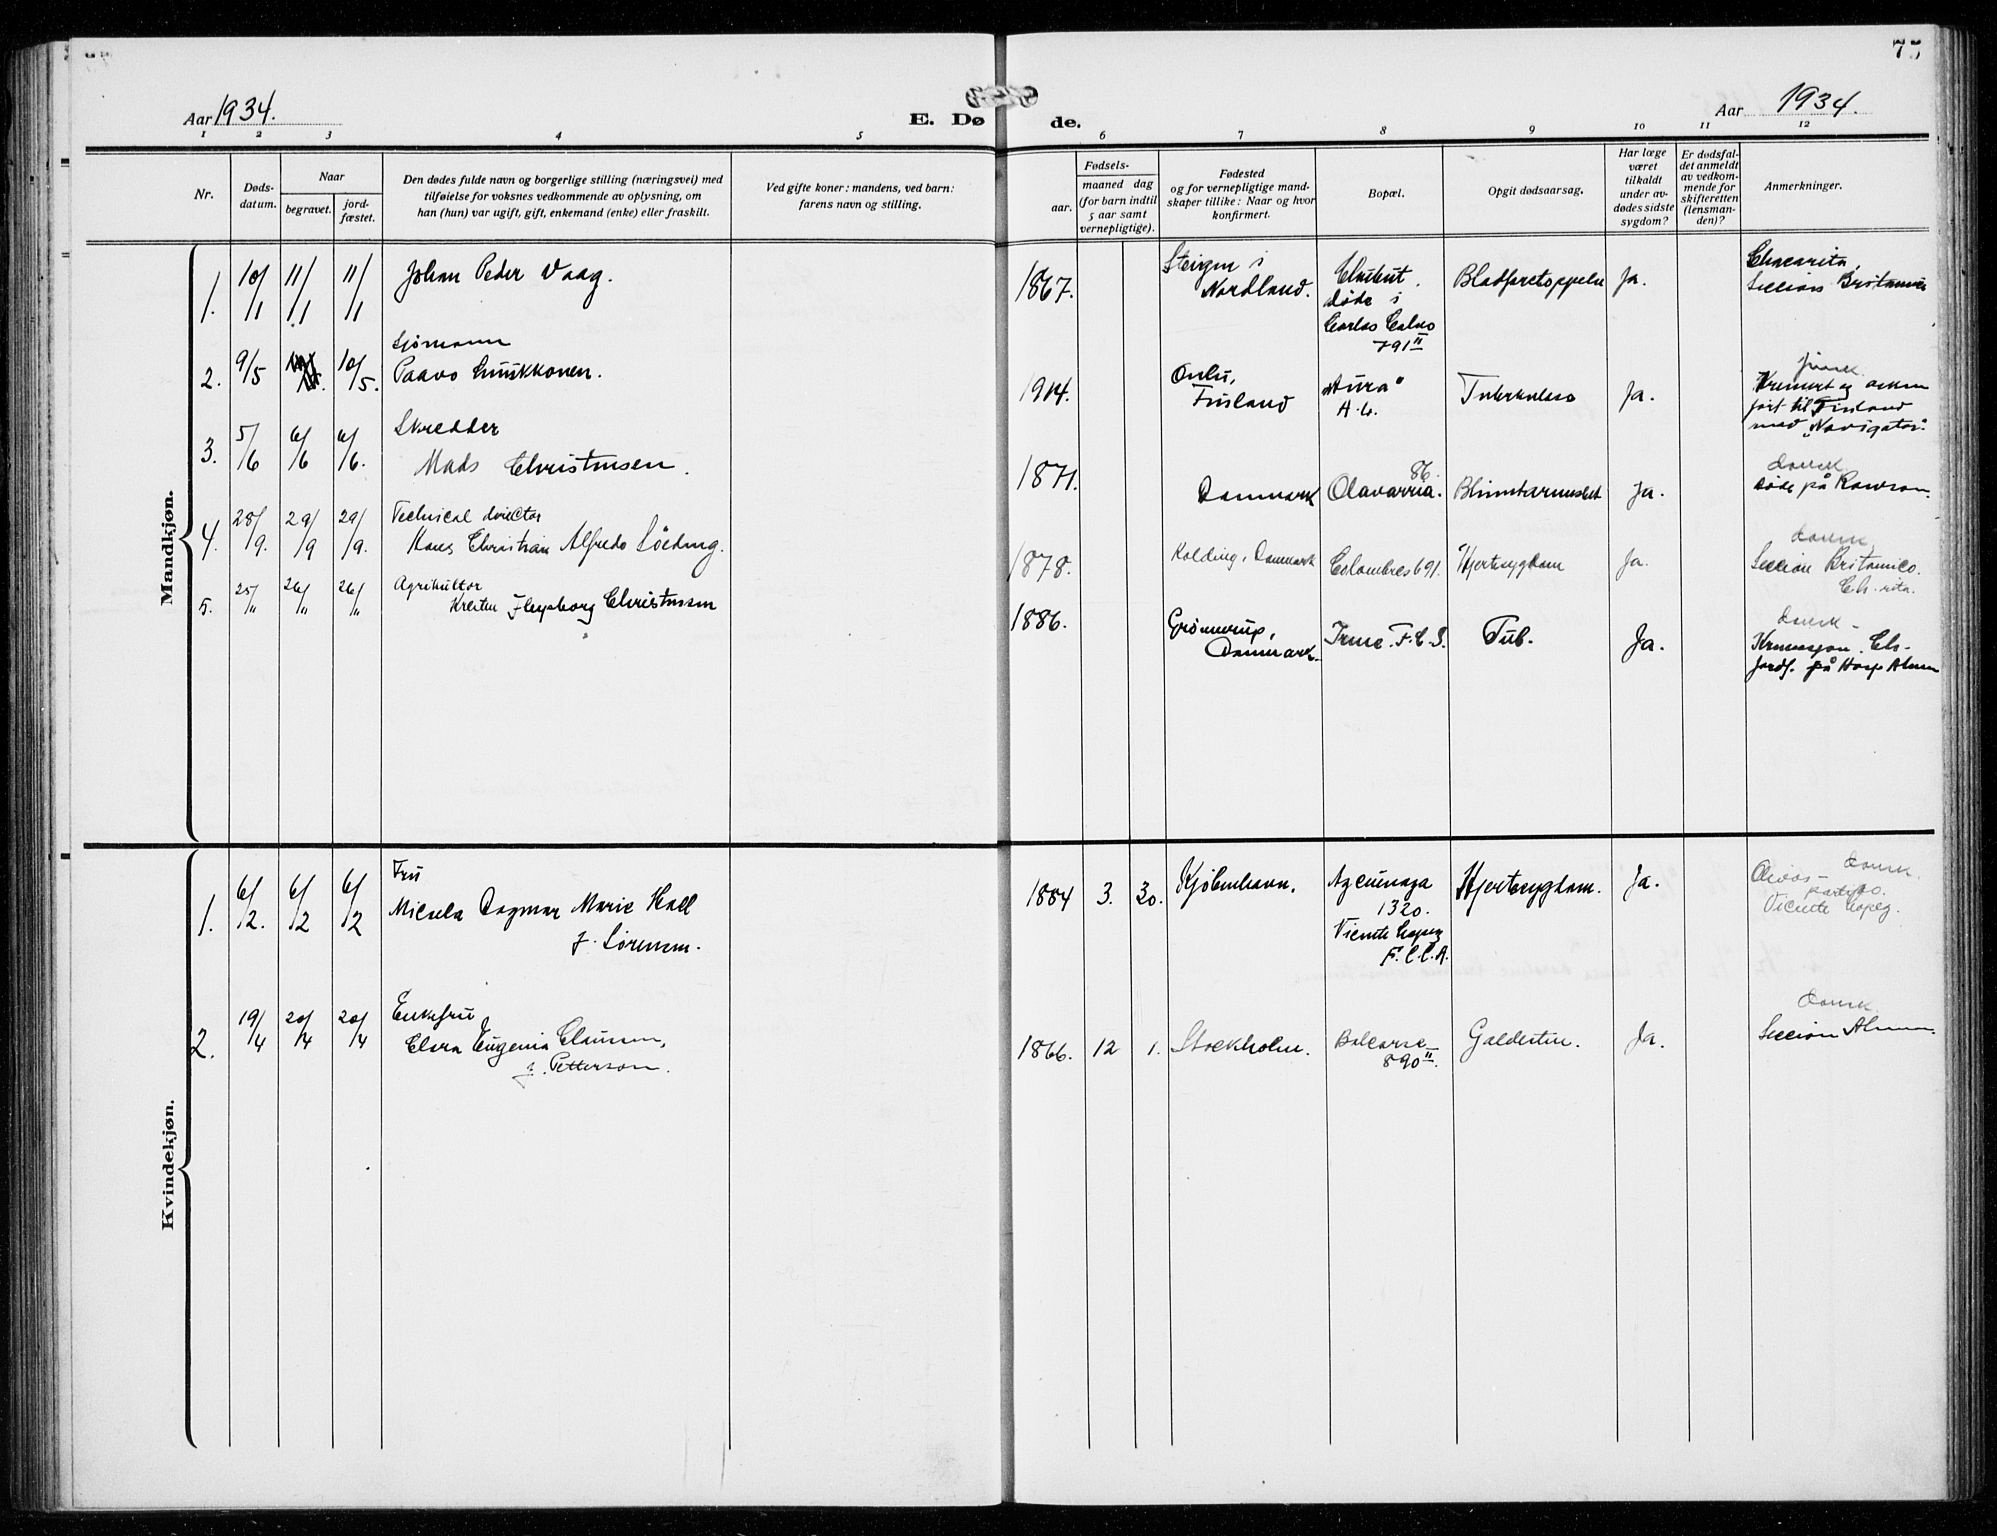 75
Aar 1934.
E. Dø de.
Aar 1934.
1 2 3 4 5 6 7 8 9 10 11 12
Nr.
Døds-
datum.
Naar
begravet.
jord-
fæstet.
Den dødes fulde navn og borgerlige stilling (næringsvei) med
tilføielse for voksnes vedkommende av oplysning, om
han (hun) var ugift, gift, enkemand (enke) eller fraskilt.
Ved gifte koner: mandens, ved barn:
farens navn og stilling.
Fødsels-
aar.
maaned dag
(for barn indtil
5 aar samt
vernepligtige).
Fødested
og for vernepligtige mand-
skaper tillike: Naar og hvor
konfirmert.
Bopæl.
Opgit dødsaarsag.
Har læge
været
tilkaldt
under av-
dødes sidste
sygdom?
Er dødsfal-
det anmeldt
av vedkom-
mende for
skifteretten
(lensman-
den)?
Anmerkninger.
Mandkjøn.
1. 10/1 11/1 11/1 Johan Peder Vaag.
1867. Steigen i
Nordland.
Chubut.
døde i
Carlos Calvo
791 II
Blodpropstoppelse Ja.
Chacarita,
Seccion Britanica
2. 9/5 10/5. Sjømann
Paavo Luukkonen.
1914. Oulu,
Finland
"Aura"
A.G.
Tuberkulose Ja.
finsk.
Kremert og asken
ført til Finland
med "Navigator".
3. 5/6 6/6 6/6. Skredder
Mads Christensen.
1871. Danmark
86.
Olavarria. Blindtarmsbet Ja.
dansk.
døde på Rawson.
4. 28/9. 29/9 29/9. Technical director
Hans Christian Alfredo Söeding.
1878. Kolding, Danmark Colombres 691. Hjertesygdom Ja.
dansk,
Seccion Britanico.
Ch.rita.
5. 25/" 26/" 26/" Agrikultor
Kresten Flegsborg Christensen
1886. Grønnerup,
Danmark.
Irene. F.C.S. Tub. Ja.
dansk-
Kremasjon. Ch-
Jordf. på Hosp Alman
Kvindekjøn.
1. 6/2. 6/2 6/2 Fru
Micaela Dagmar Marie Hall
f. Sørensen.
1884 3. 30. Kjöbenhavn.
Azcuenaga
1320.
Vicente Lopez
F.C.C.A.
Hjertesygdom. Ja.
dansk.
Olivos-
partido.
Vicente Lopez.
2. 19/4 20/4 20/4 Enkefru
Clara Eugenia Clausen,
f. Petterson.
1866. 12 1. Stockholm.
Balcarce
890 II.
Galdesten. Ja.
dansk
Seccion Aleman.